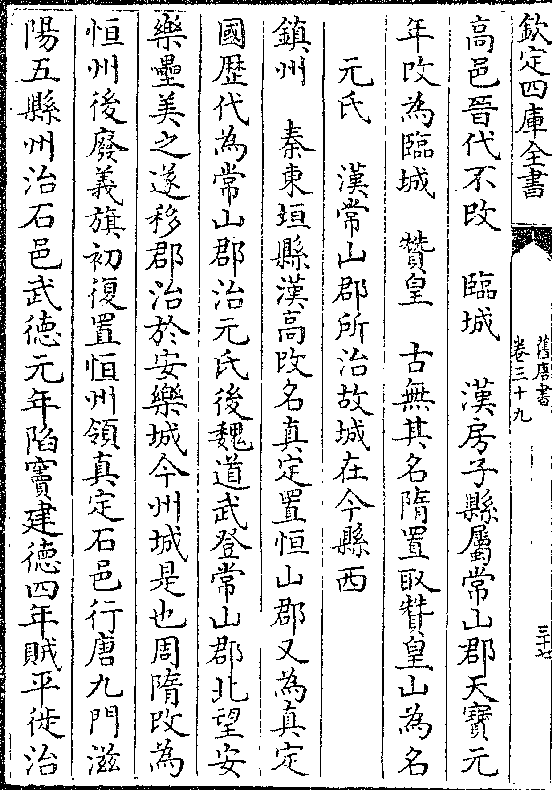 欽定四庫全書
舊唐書
卷三十九
三十七
高邑晉代不改　臨城　漢房子縣屬常山郡天寶元
年改為臨城　贊皇　古無其名隋置取贊皇山為名
元氏　漢常山郡所治故城在今縣西
鎮州　秦東垣縣漢高改名真定置恒山郡又為真定
國歴代為常山郡治元氏後魏道武登常山郡北望安
樂壘美之遂移郡治於安樂城今州城是也周隋改為
恒州後廢義旗初復置恒州領真定石邑行唐九門滋
陽五縣州治石邑武德元年陷竇建德四年賊平徙治